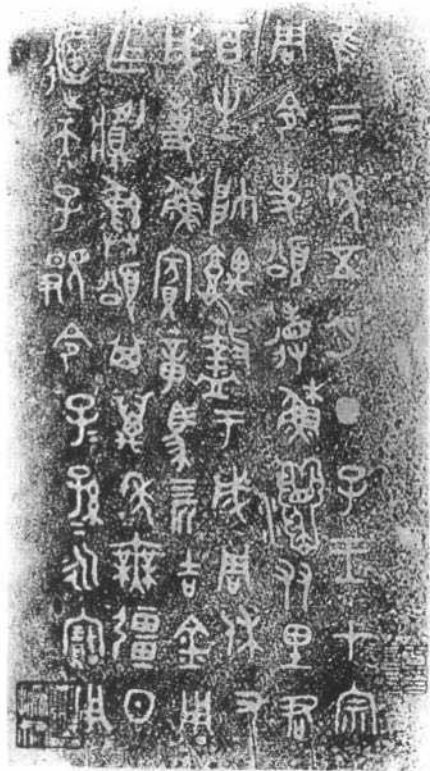 隹三年五月丁巳王才宗
周令史頌省穌友里君
百生帥盩于成周休又
成事穌賓章馬四匹吉金用
乍彝頌其萬年無疆日
天子令子＝孫＝永寶用